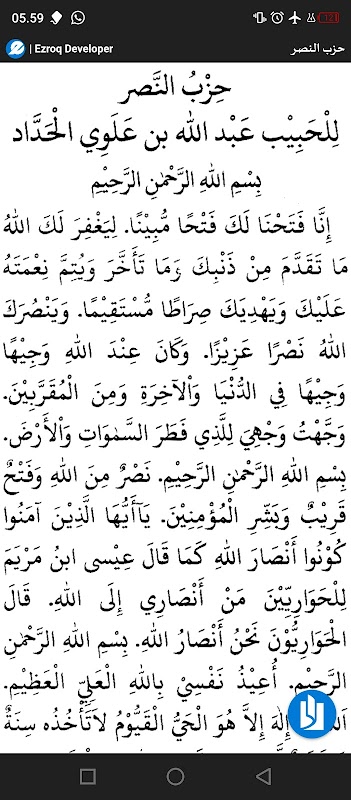 05.59
12
| Ezroq Developer
حزب النصر
حِزْبُ النَّصر
لِلْحَبِيْب عَبْد الله بن عَلَوِي الْحَدَّاد
بِسْمِ اللهِ الرَّحْمٰنِ الرَّحِيْمِ
إِنَّا فَتَحْنَا لَكَ فَتْحًا مُّبِيْنًا. لِيَغْفِرَ لَكَ اللهُ
مَا تَقَدَّمَ مِنْ ذَنْبِكَ وَمَا تَأَخَّرَ وَيُتِمَّ نِعْمَتَهُ
عَلَيْكَ وَيَهْدِيَكَ صِرَاطًا مُّسْتَقِيْمًا. وَيَنْصُرَكَ
اللهُ نَصْرًا عَزِيْزًا. وَكَانَ عِنْدَ اللهِ وَجِيْهًا
وَجِيْهًا فِي الدُّنْيَا وَالْآخِرَةِ وَمِنَ الْمُقَرَّبِيْنَ.
وَجَّهْتُ وَجْهِيَ لِلَّذِي فَطَرَ السَّمٰوَاتِ وَالْأَرْضَ.
بِسْمِ اللهِ الرَّحْمٰنِ الرَّحِيْمِ. نَصْرٌ مِنَ اللهِ وَفَتْحٌ
قَرِيْبٌ وَبَشِّرِ الْمُؤْمِنِيْنَ. يَآأَيُّهَا الَّذِيْنَ آمَنُوا
كُوْنُوا أَنْصَارَ اللهِ كَمَا قَالَ عِيْسى ابنُ مَرْيَمَ
لِلْحَوَارِيِّيْنَ مَنْ أَنْصَارِي إِلَى اللهِ. قَالَ
الْحَوَارِيُّوْنَ نَحْنُ أَنْصَارُ اللهِ. بِسْمِ اللهِ الرَّحْمٰنِ
الرَّحِيْمِ. أُعِيْذُ نَفْسِيْ بِاللهِ الْعَلِيِّ الْعَظِيْمِ.
إِلٰهَ إِلاَّ هُوَ الْحَيُّ الْقَيُّوْمُ لاَتَأْخُذُه سِنَةٌ